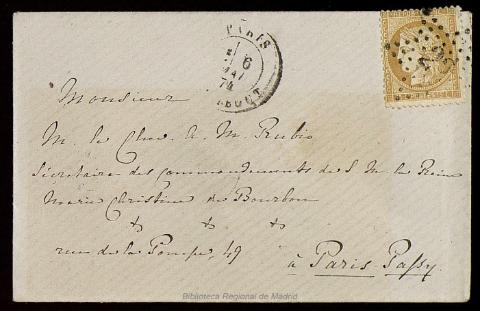 PARIS
6
MAI
74
Monsieur
M. le Chev. A. M. Rubio
Sécrétaire des Commandements de S. M. la Reine
Marie Christine de Bourbon
rue de la Pompe, 49
à Paris Passy.
Biblioteca Regional de Madrid